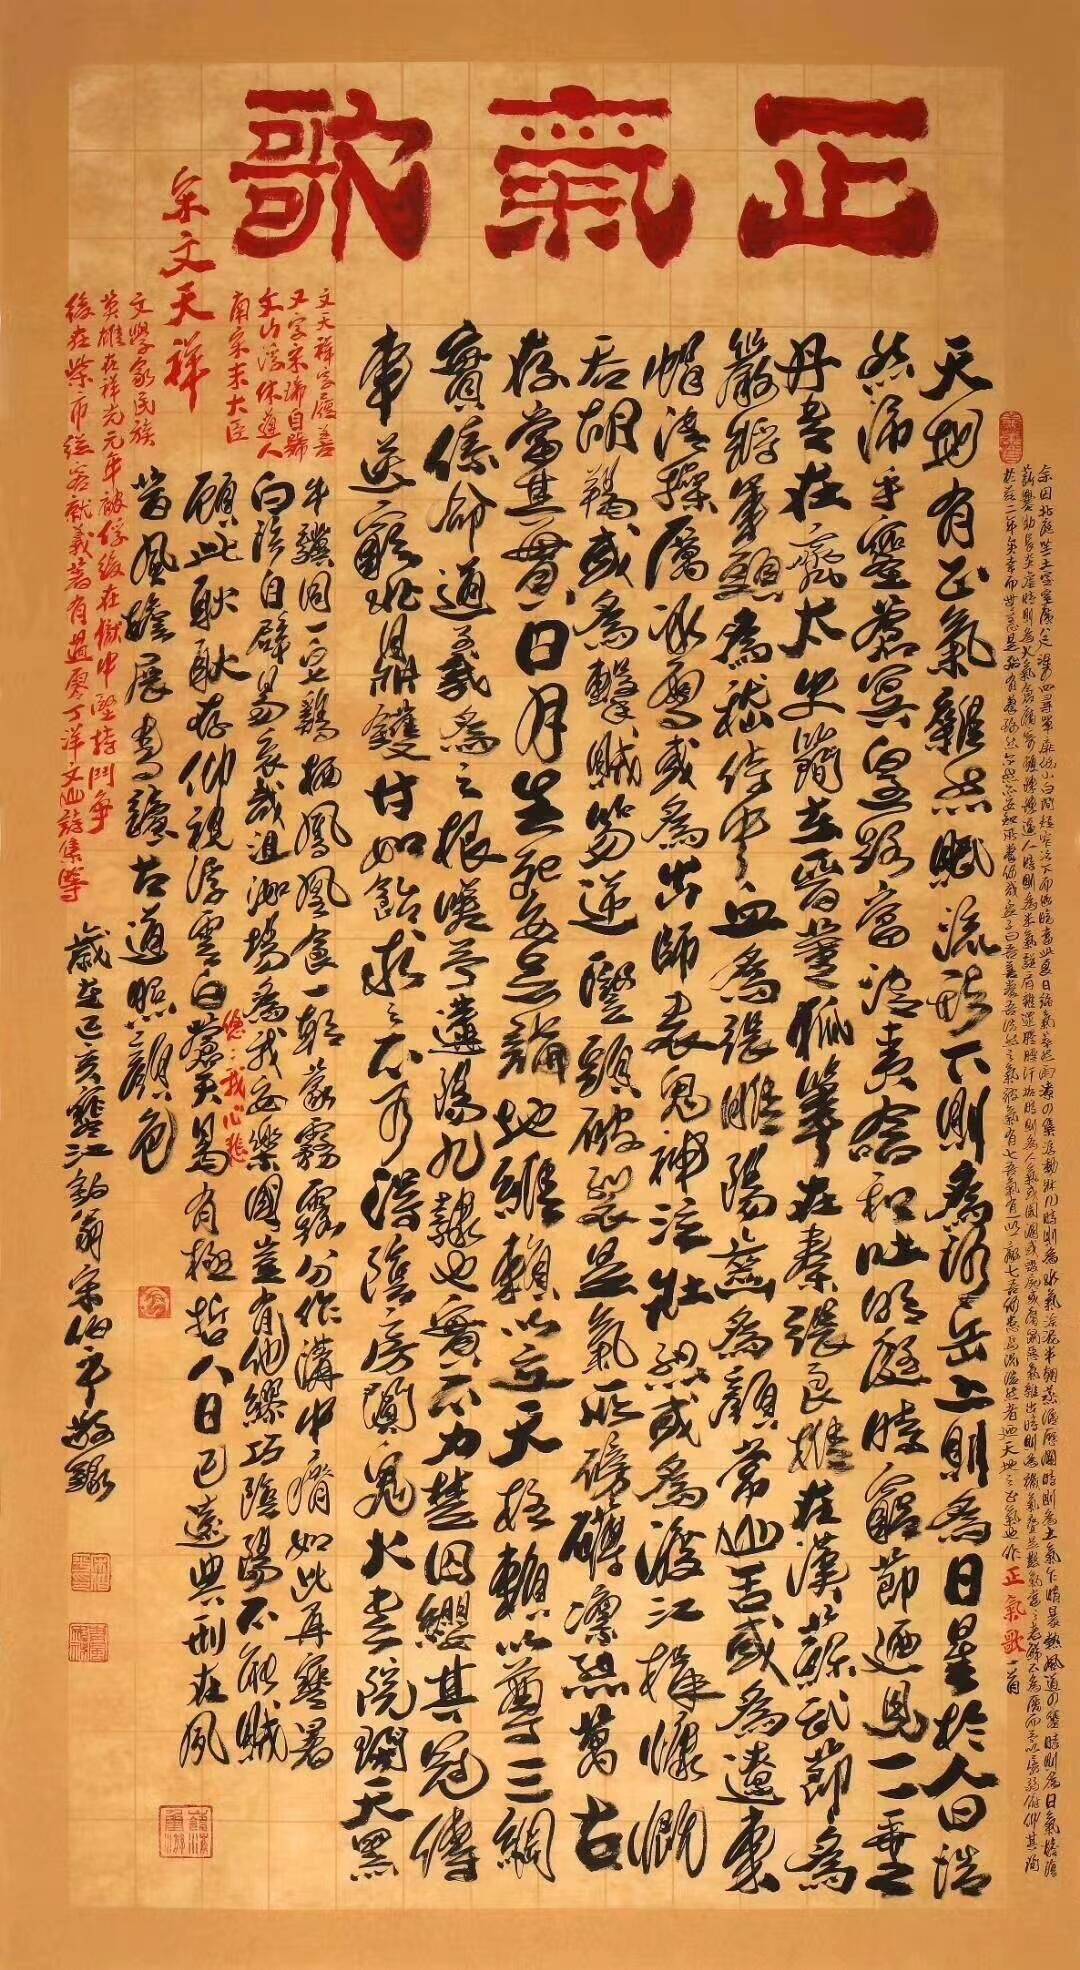 正氣歌
余囚北庭坐土室室廣八尺深可四尋單扉低小白間短窄污下而幽暗當此夏日諸氣萃然雨潦四集浮動牀几時則為水氣塗泥半朝蒸漚歷瀾時則為土氣乍晴暴熱風道四塞時則為日氣檐陰
薪爨助長炎虐時則為火氣倉腐寄頓陳陳逼人時則為米氣駢肩雜遝腥臊汗垢時則為人氣或圊溷或毀屍或腐鼠惡氣雜出時則為穢氣疊是數氣當之者鮮不為厲而予以孱弱俯仰其間
於茲二年矣幸而無恙是殆有養致然爾然亦安知所養何哉孟子曰吾善養吾浩然之氣彼氣有七吾氣有一以一敵七吾何患焉況浩然者迺天地之正氣也作正氣歌一首
天地有正氣雜然賦流形下則為河岳上則為日星於人曰浩
然沛乎塞蒼冥皇路當清夷含和吐明庭時窮節迺見一一垂
丹青在齊太史簡在晉董狐筆在秦張良椎在漢蘇武節為
嚴將軍頭為嵇侍中血為張睢陽齒為顏常山舌或為遼東
帽清操厲冰雪或為出師表鬼神泣壯烈或為渡江楫慷慨
吞胡羯或為擊賊笏逆豎頭破裂是氣所磅礴凜烈萬古
存當其貫日月生死安足論地維賴以立天柱賴以尊三綱
實係命道義為之根嗟予遘陽九隸也實不力楚囚纓其冠傳
車送窮北鼎鑊甘如飴求之不可得陰房闃鬼火春院閟天黑
牛驥同一皂雞栖鳳凰食一朝蒙霧露分作溝中瘠如此再寒暑
百沴自辟易哀哉沮洳場為我安樂國豈有他繆巧陰陽不能賊
顧此耿耿存仰視浮雲白蒼天曷有極哲人日已遠典刑在夙
悠悠我心悲
昔風簷展書讀古道照顏色
宋文天祥
文天祥字履善
又字宋瑞自號
文山浮休道人
南宋末大臣
文學家民族
英雄在祥光元年被俘後在獄中堅持鬥爭
後在柴市從容就義著有過零丁洋文山詩集等
歲在己亥寒江釣翁宋伯平敬錄